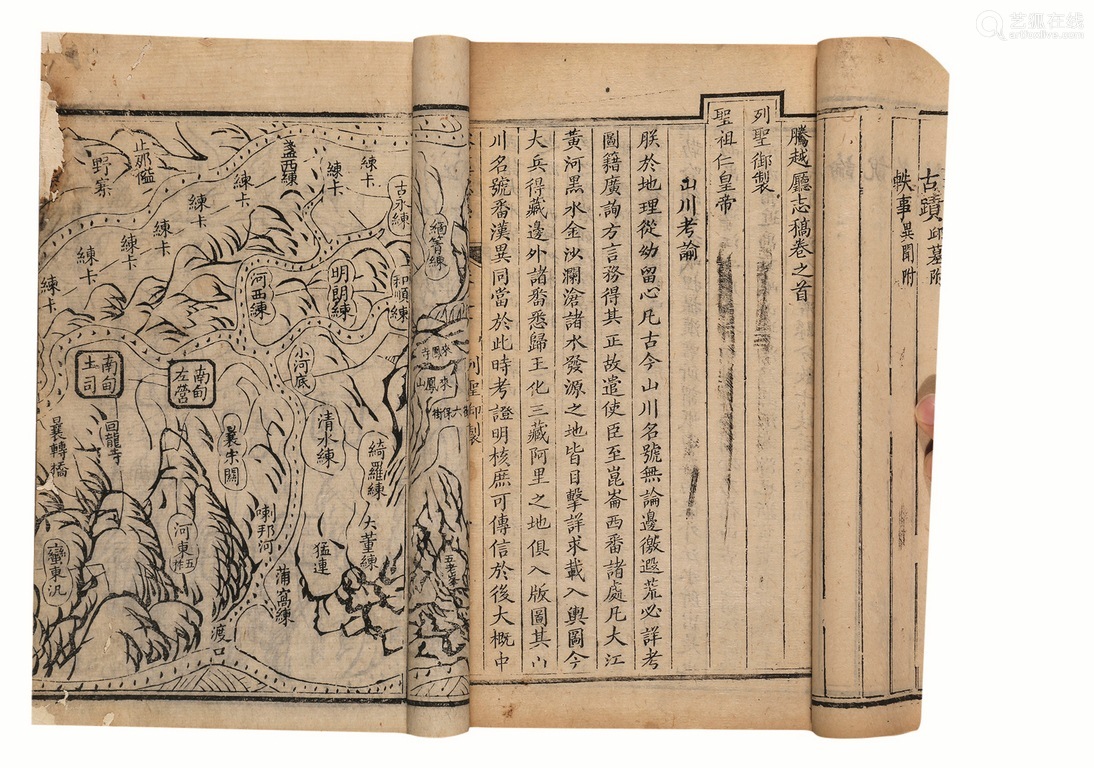 艺狐在线
artfoxlive.com
古蹟邱墓附
軼事異聞附
騰越廳志稿卷之首
列聖御製
聖祖仁皇帝
山川考論
朕於地理從幼留心凡古今山川名號無論邊徼遐荒必詳考
圖籍廣詢方言務得其正故遣使臣至崑崙西番諸處凡大江
黃河黑水金沙瀾滄諸水發源之地皆目擊詳求載入輿圖今
大兵得藏邊外諸番悉歸王化三藏阿里之地俱入版圖其山
川名號番漢異同當於此時考證明核庶可傳信於後大概中
列聖御製
緬箐練
來鳳寺
來鳳山
五老峯
古永練
和順練
練卡
練卡
盞西練
練卡
練卡
練卡
練卡
練卡
止那隘
野寨
明朗練
河西練
小河底
清水練
綺羅練
大董練
猛連
南甸左營
南甸土司
曩宋關
回龍寺
曩轉橋
喇邦河
蒲窩練
河東五
蠻東汛
渡口